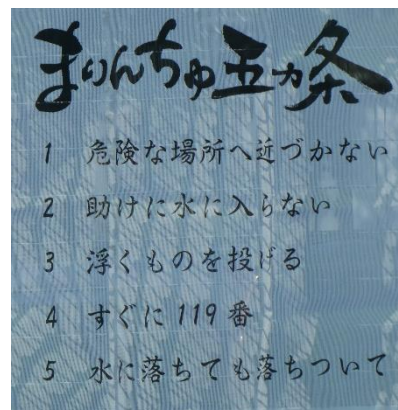 まりんちゅ五カ条
1 危険な場所へ近づかない
2 助けに水に入らない
3 浮くものを投げる
4 すぐに119番
5 水に落ちても落ちついて